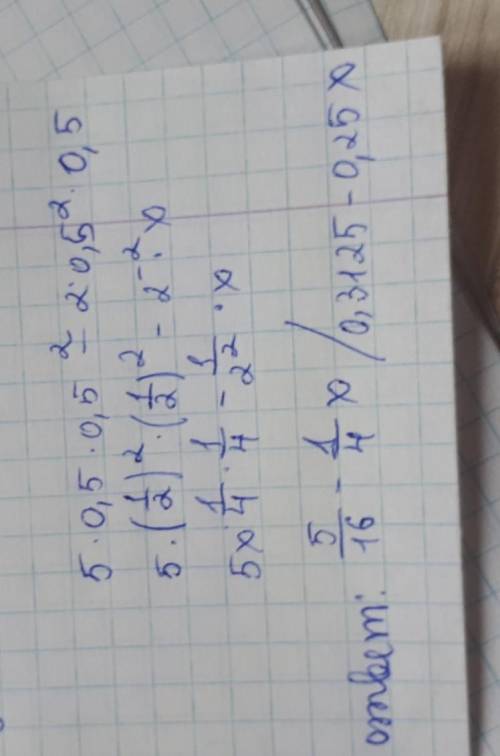 5 · 0,5 · 0,5² – 2 · 0,5² · 0,5
5 · (1/2)² · (1/2)² – 2⁻² · x
5x · 1/4 · 1/4 – 1/2² · x
ответ: 5/16 – 1/4 x / 0,3125 – 0,25x